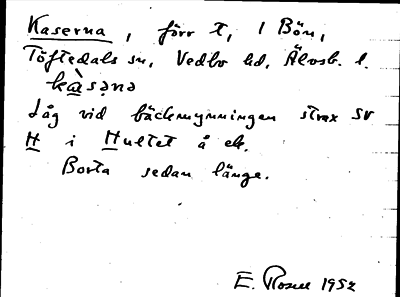 Kaserna, förr t, 1 Bön,
Töftedals sn, Vedbo hd, Älvsb. l.
kὰsəṇə
Låg vid bäckmynningen strax SV
H i Hultet å ek.
Borta sedan länge.
E. Rosell 1952